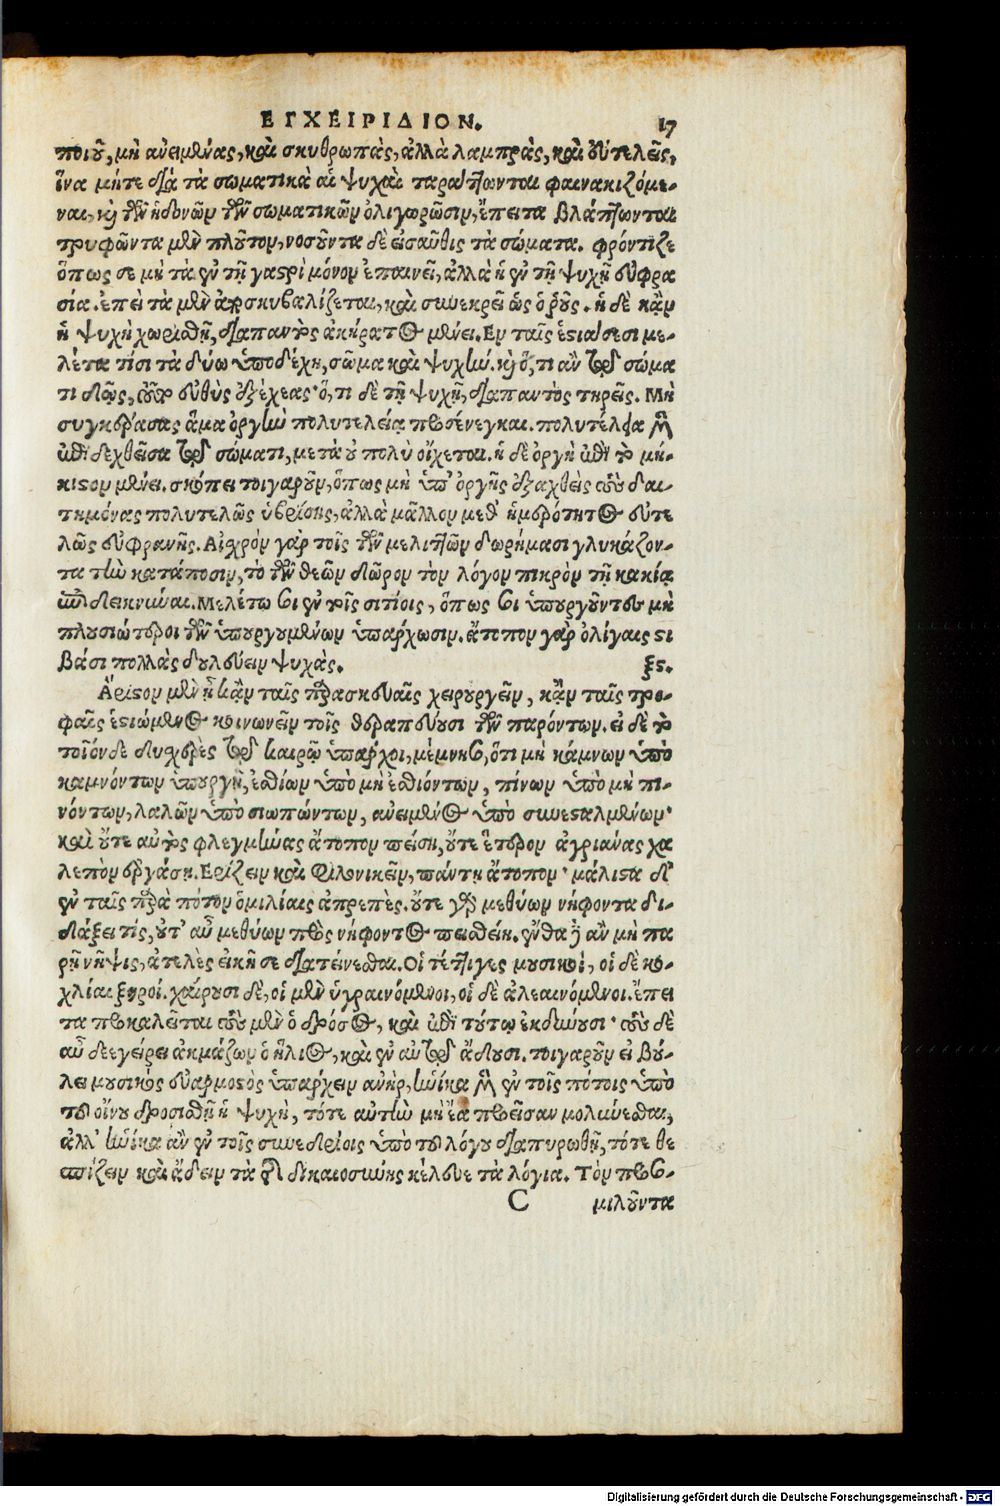 ΕΓΧΕΙΡΙΔΙΟΝ. 17
ποιοῦ, μὴ ἀνειμένας, καὶ σκυθρωπὰς, ἀλλὰ λαμπρὰς, καὶ εὐτελεῖς,
ἵνα μήτε διὰ τὰ σωματικὰ αἱ ψυχαὶ ταράττωνται φαινακιζόμε-
ναι, καὶ τῶν ἡδονῶν τῶν σωματικῶν ὀλιγωρῶσιν, ἔπειτα βλάπτωνται
τρυφῶντα μὲν πλοῦτον, νοσοῦντα δὲ εἰσαῦθις τὰ σώματα. φρόντιζε
ὅπως σε μὴ τὰ ἐν τῇ γαστρὶ μόνον ἐπαινεῖ, ἀλλὰ ἡ ἐν τῇ ψυχῇ εὐφρα
σία. ἐπεὶ τὰ μὲν ἀποσκυβαλίζεται, καὶ συνεκρεῖ ὡς ὀρὸς. ἡ δὲ κἂν
ἡ ψυχὴ χωρισθῇ, διαπαντὸς ἀκήρατος μένει. Εν ταῖς ἑστιάσεσι με-
λέτα τίσι τὰ δύω ὑποδέχῃ, σῶμα καὶ ψυχὴν. καὶ ὅ, τι ἂν τῷ σώμα
τι δῷς, τοῦτο εὐθὺς ἐξέχεας· ὅ, τι δὲ τῇ ψυχῇ, διαπαντὸς τηρεῖς. Μὴ
συγκεράσας ἅμα ὀργὴν πολυτελείᾳ προσένεγκαι. πολυτέλεια μὲν
ἐπιδεχθεῖσα τῷ σώματι, μετὰ οὐ πολὺ οἴχεται. ἡ δὲ ὀργὴ ἐπὶ τὸ μή-
κιστον μένει. σκόπει τοιγαροῦν, ὅπως μὴ ὑπ' ὀργῆς ἐξαχθεὶς τοὺς δαι-
τημόνας πολυτελῶς ὑβρίσῃς, ἀλλὰ μᾶλλον μεθ' ἡμερότητος εὐτε
λῶς εὐφρανῇς. Αἰσχρὸν γὰρ τοῖς τῶν μελιττῶν δωρήμασι γλυκάζον-
τα τὴν κατάποσιν, τὸ τῶν θεῶν δῶρον τὸν λόγον πικρὸν τῇ κακίᾳ
ἐπιδεικνύναι. Μελέτω σοι ἐν τοῖς σιτίοις, ὅπως σοι ὑπουργοῦντες μὴ
πλουσιώτεροι τῶν ὑπουργουμένων ὑπάρχωσιν. ἄτοπον γὰρ ὀλίγαις στι
βάσι πολλὰς δουλεύειν ψυχάς. ξϛ.
Ἄριστον μὲν ἦν κἂν ταῖς παρασκευαῖς χειρουργεῖν, κἂν ταῖς τρο-
φαῖς ἑστιώμενος κοινωνεῖν τοῖς θεραπεύουσι τῶν παρόντων. εἰ δὲ τὸ
τοιόνδε δυσχερὲς τῷ καιρῷ ὑπάρχοι, μέμνησο, ὅτι μὴ κάμνων ὑπὸ
καμνόντων ὑπουργῇ, ἐσθίων ὑπὸ μὴ ἐσθιόντων, πίνων ὑπὸ μὴ πι-
νόντων, λαλῶν ὑπὸ σιωπώντων, ἀνειμένος ὑπὸ συνεσταλμένων·
καὶ οὔτε αὐτὸς φλεγμήνας ἄτοπον πείσῃ, οὔτε ἕτερον ἀγριάνας χα
λεπὸν ἐργάσῃ. Ερίζειν καὶ φιλονικεῖν, πάντη ἄτοπον· μάλιστα δ'
ἐν ταῖς παρὰ πότον ὁμιλίαις ἀπρεπὲς. οὔτε γὰρ μεθύων νήφοντα δι-
δάξει τίς, οὔτ' αὖ μεθύων πρὸς νήφοντος πεισθείη. ἔνθα δὲ ἂν μὴ πα
ρῇ νῆψις, ἀτελὲς εἰκῆ σε διατείνεσθαι. Οἱ τέττιγες μουσικοί, οἱ δὲ κο-
χλίαι ξηροί. χαίρουσι δὲ, οἱ μὲν ὑγραινόμενοι, οἱ δὲ ἀλεαινόμενοι. ἔπει
τα προκαλεῖται τοὺς μὲν ὁ δρόσος, καὶ ἐπὶ τούτῳ ἐκδύνουσι· τοὺς δὲ
αὖ διεγείρει ἀκμάζων ὁ ἥλιος, καὶ ἐν αὐτῷ ᾄδουσι. τοιγαροῦν εἰ βού-
λει μουσικὸς εὐάρμοστος ὑπάρχειν ἀνὴρ, ἡνίκα μὲν ἐν τοῖς πότοις ὑπὸ
τοῦ οἴνου δροσισθῇ ἡ ψυχὴ, τότε αὐτὴν μὴ ἔα προεῖσαν μολύνεσθαι,
ἀλλ' ἡνίκα ἂν ἐν τοῖς συνεδρίοις ὑπὸ τοῦ λόγου διαπυρωθῇ, τότε θε
σπίζειν καὶ ᾄδειν τὰ τῆς δικαιοσύνης κέλευε τὰ λόγια. Τὸν προσο-
C μιλοῦντα
Digitalisierung gefördert durch die Deutsche Forschungsgemeinschaft - DFG